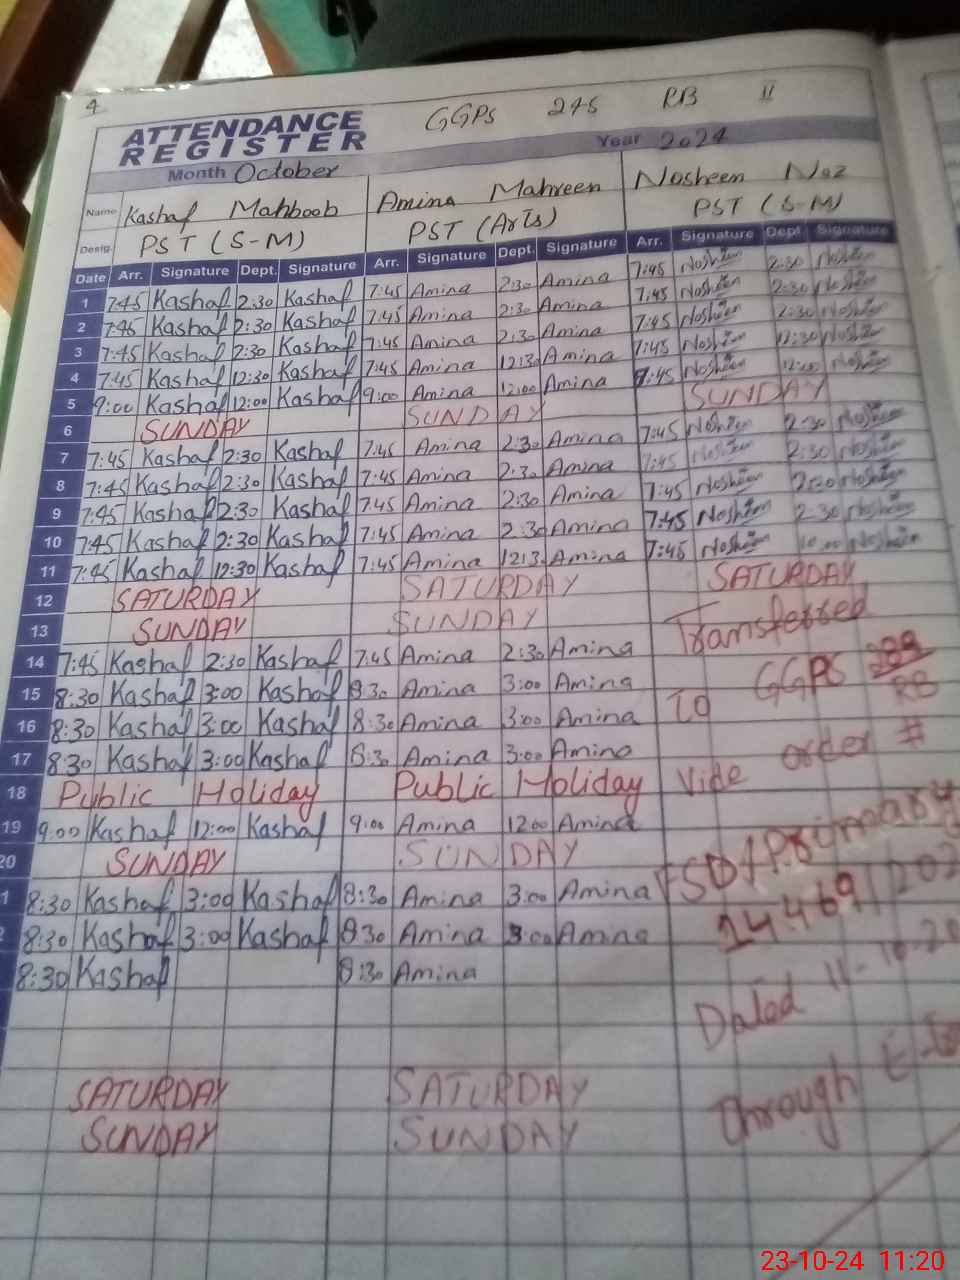 4
ATTENDANCE REGISTER GGPS 275 RB II
Month October Year 2024
Name Kashaf Mahboob Amina Mahreen Nosheen Naz
Desig. PST (S-M) PST (Arts) PST (S-M)
Date Arr. Signature Dept. Signature Arr. Signature Dept. Signature Arr. Signature Dept Signature
1 7:45 Kashaf 2:30 Kashaf 7:45 Amina 2:30 Amina 7:45 Nosheen 2:30 Nosheen
2 7:45 Kashaf 2:30 Kashaf 7:45 Amina 2:30 Amina 7:45 Nosheen 2:30 Nosheen
3 7:45 Kashaf 2:30 Kashaf 7:45 Amina 2:30 Amina 7:45 Nosheen 2:30 Nosheen
4 7:45 Kashaf 12:30 Kashaf 7:45 Amina 12:30 Amina 7:45 Nosheen 12:30 Nosheen
5 9:00 Kashaf 12:00 Kashaf 9:00 Amina 12:00 Amina 9:45 Nosheen 12:00 Nosheen
6 SUNDAY SUNDAY SUNDAY
7 7:45 Kashaf 2:30 Kashaf 7:45 Amina 2:30 Amina 7:45 Nosheen 2:30 Nosheen
8 7:45 Kashaf 2:30 Kashaf 7:45 Amina 2:30 Amina 7:45 Nosheen 2:30 Nosheen
9 7:45 Kashaf 2:30 Kashaf 7:45 Amina 2:30 Amina 7:45 Nosheen Nosheen
10 7:45 Kashaf 2:30 Kashaf 7:45 Amina 2:30 Amina 7:45 Nosheen 2:30 Nosheen
11 7:45 Kashaf 12:30 Kashaf 7:45 Amina 12:3 Amina 7:45 Nosheen Nosheen
12 SATURDAY SATURDAY SATURDAY
13 SUNDAY SUNDAY Transferred
14 7:45 Kashaf 2:30 Kashaf 7:45 Amina 2:30 Amina
15 8:30 Kashaf 3:00 Kashaf 8:30 Amina 3:00 Amina To GGPS 289 RB
16 8:30 Kashaf 3:00 Kashaf 8:30 Amina 3:00 Amina
17 8:30 Kashaf 3:00 Kashaf 8:30 Amina 3:00 Amina Vide order #
18 Public Holiday Public Holiday
19 9:00 Kashaf 12:00 Kashaf 9:00 Amina 12:00 Amina
20 SUNDAY SUNDAY FSD/Primary
1 8:30 Kashaf 3:00 Kashaf 8:30 Amina 3:00 Amina 14469/202
2 8:30 Kashaf 3:00 Kashaf 8:30 Amina 3:00 Amina
8:30 Kashaf 8:30 Amina
Dated 11-10-20
SATURDAY SATURDAY Through
SUNDAY SUNDAY
23-10-24 11:20